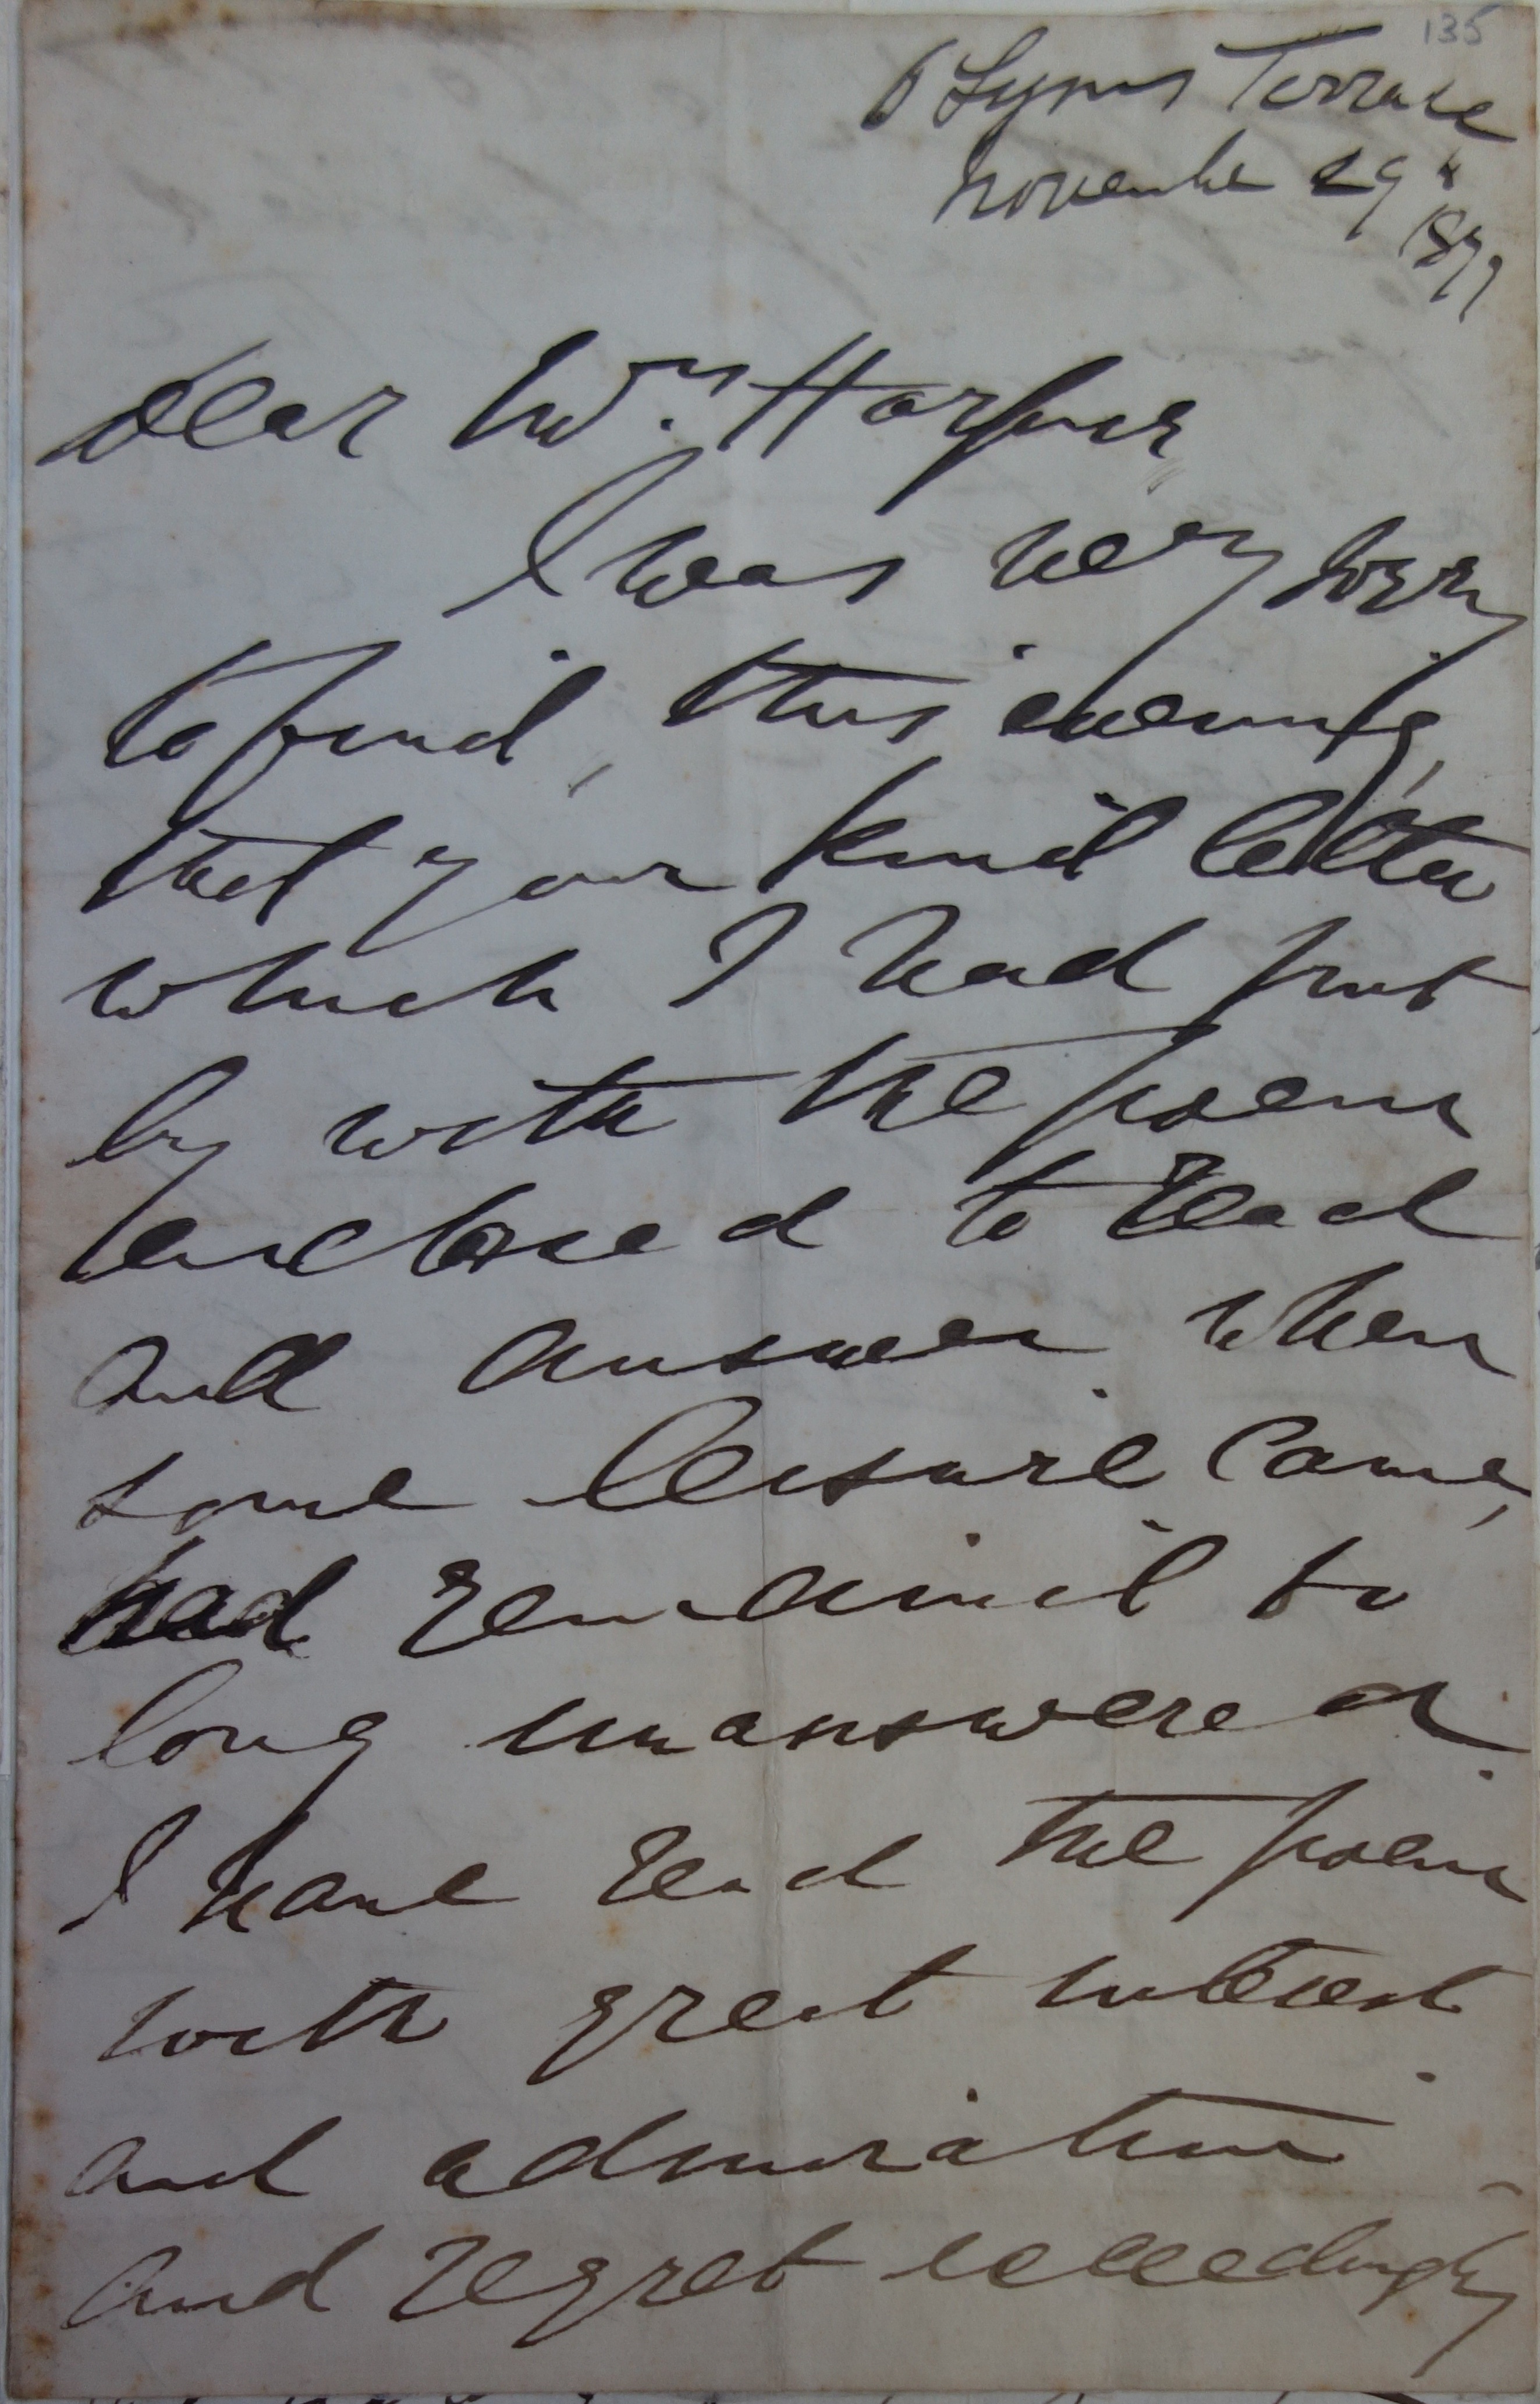 135
6 Lyons Terrace
November 29th
Dear Mrs. Harpur
I was very sorry
to find, this evening,
that your kind letter
which I had put
by with the poem
enclosed to read
and answer when
some leisure came,
had remained so
long unanswered.
I have read the poem
with great interest
and admiration
and regret exceedingly